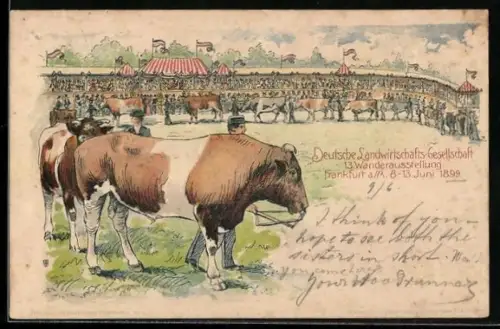 Deutsche Landwirtschafts-Gesellschaft
13. Wanderausstellung
Frankfurt a/M. 8-13. Juni 1899
9/6.
I think of you –
hope to see both the
sisters in short.
you
Yours